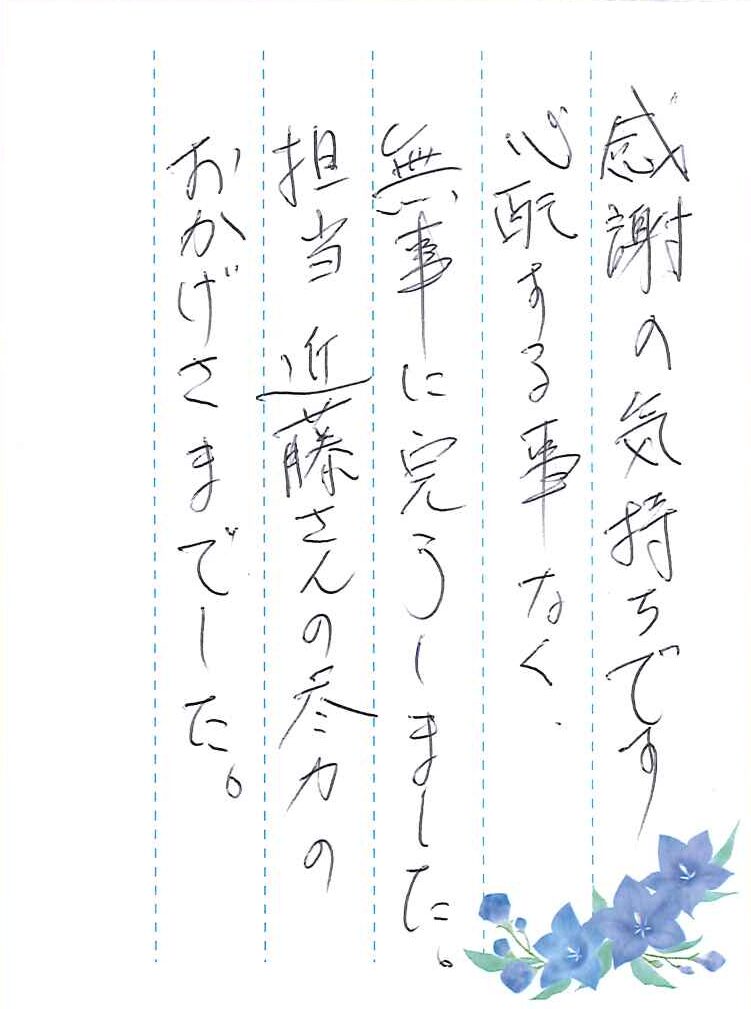 感謝の気持ちです
心配する事なく、
無事に完うしました。
担当 近藤さんの尽力の
おかげさまでした。